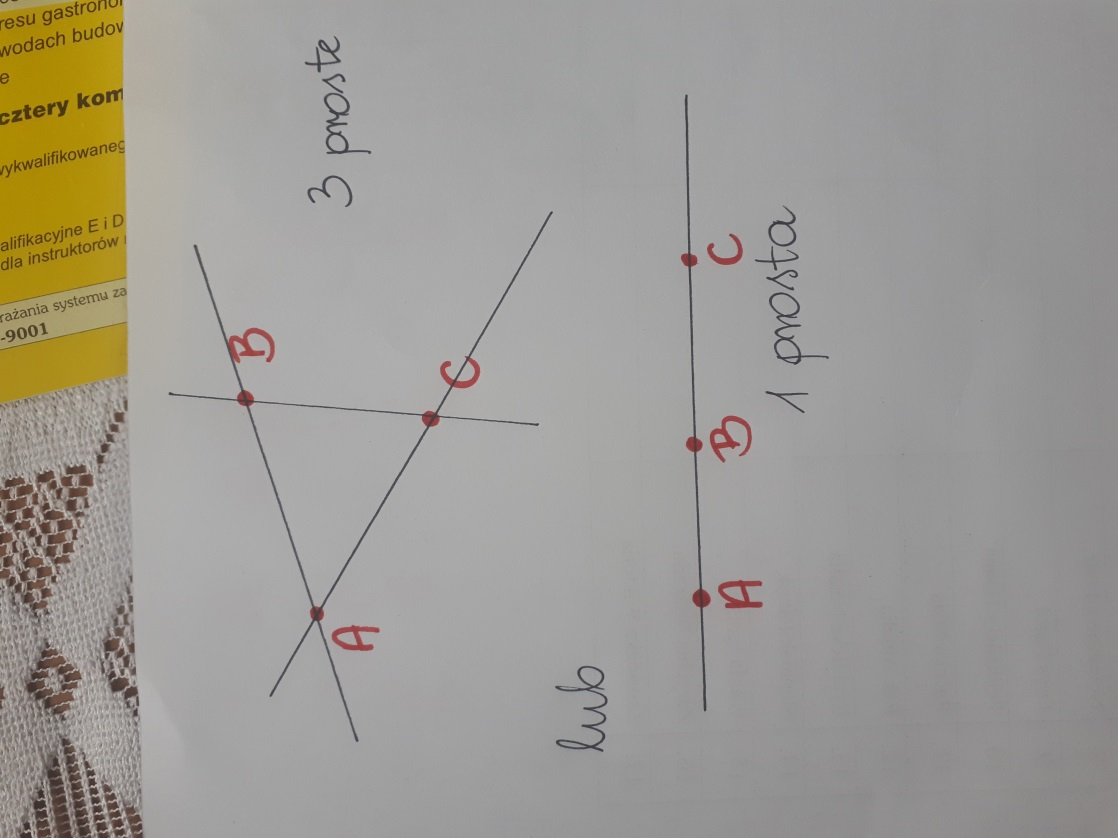 resu gastrono
wodach budow
e
cztery kom
wykwalifikowaneg
alifikacyjne E i D
dla instruktorów
rażania systemu za
-9001
3 proste
B
C
A
lub
A
B
C
1 prosta